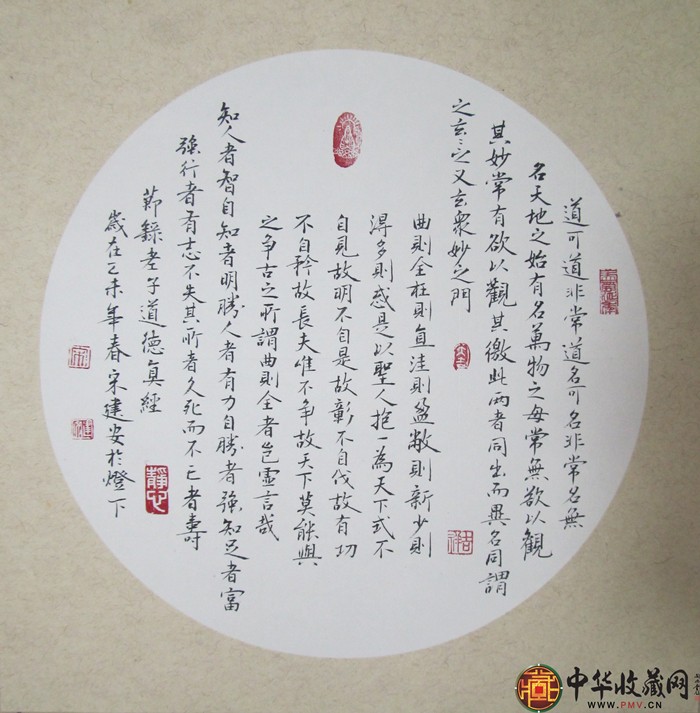 道可道非常道名可名非常名無
名天地之始有名萬物之母常無欲以觀
其妙常有欲以觀其徼此两者同出而異名同謂
之玄玄之又玄衆妙之門
曲則全枉則直洼則盈敝則新少則
得多則惑是以聖人抱一為天下式不
自見故明不自是故彰不自伐故有功
不自矜故長夫唯不争故天下莫能與
之争古之所謂曲則全者豈虛言哉
知人者智自知者明勝人者有力自勝者强知足者富
强行者有志不失其所者久死而不亡者壽
節錄老子道德真經
歲在乙未年春宋建安於燈下
靜心
中华收藏网
www.PMV.CN